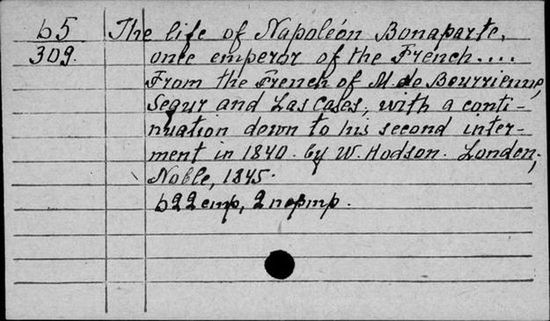 б5
309.
The life of Napoléon Bonaparte,
once emperor of the French....
From the French of M. de Bourrienne,
Segur and Las Cases, with a conti-
nuation down to his second inter-
ment in 1840. by W. Hodson. London,
Noble, 1845.
622 стр, 2 портр.